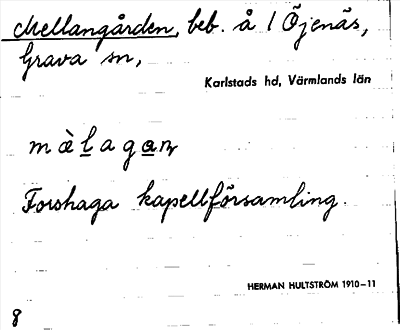 Mellangården, beb. å 1 Öjenäs,
Grava sn,
Karlstads hd, Värmlands län
mὰlagaɳ
Forshaga kapellförsamling.
HERMAN HULTSTRÖM 1910-11
8